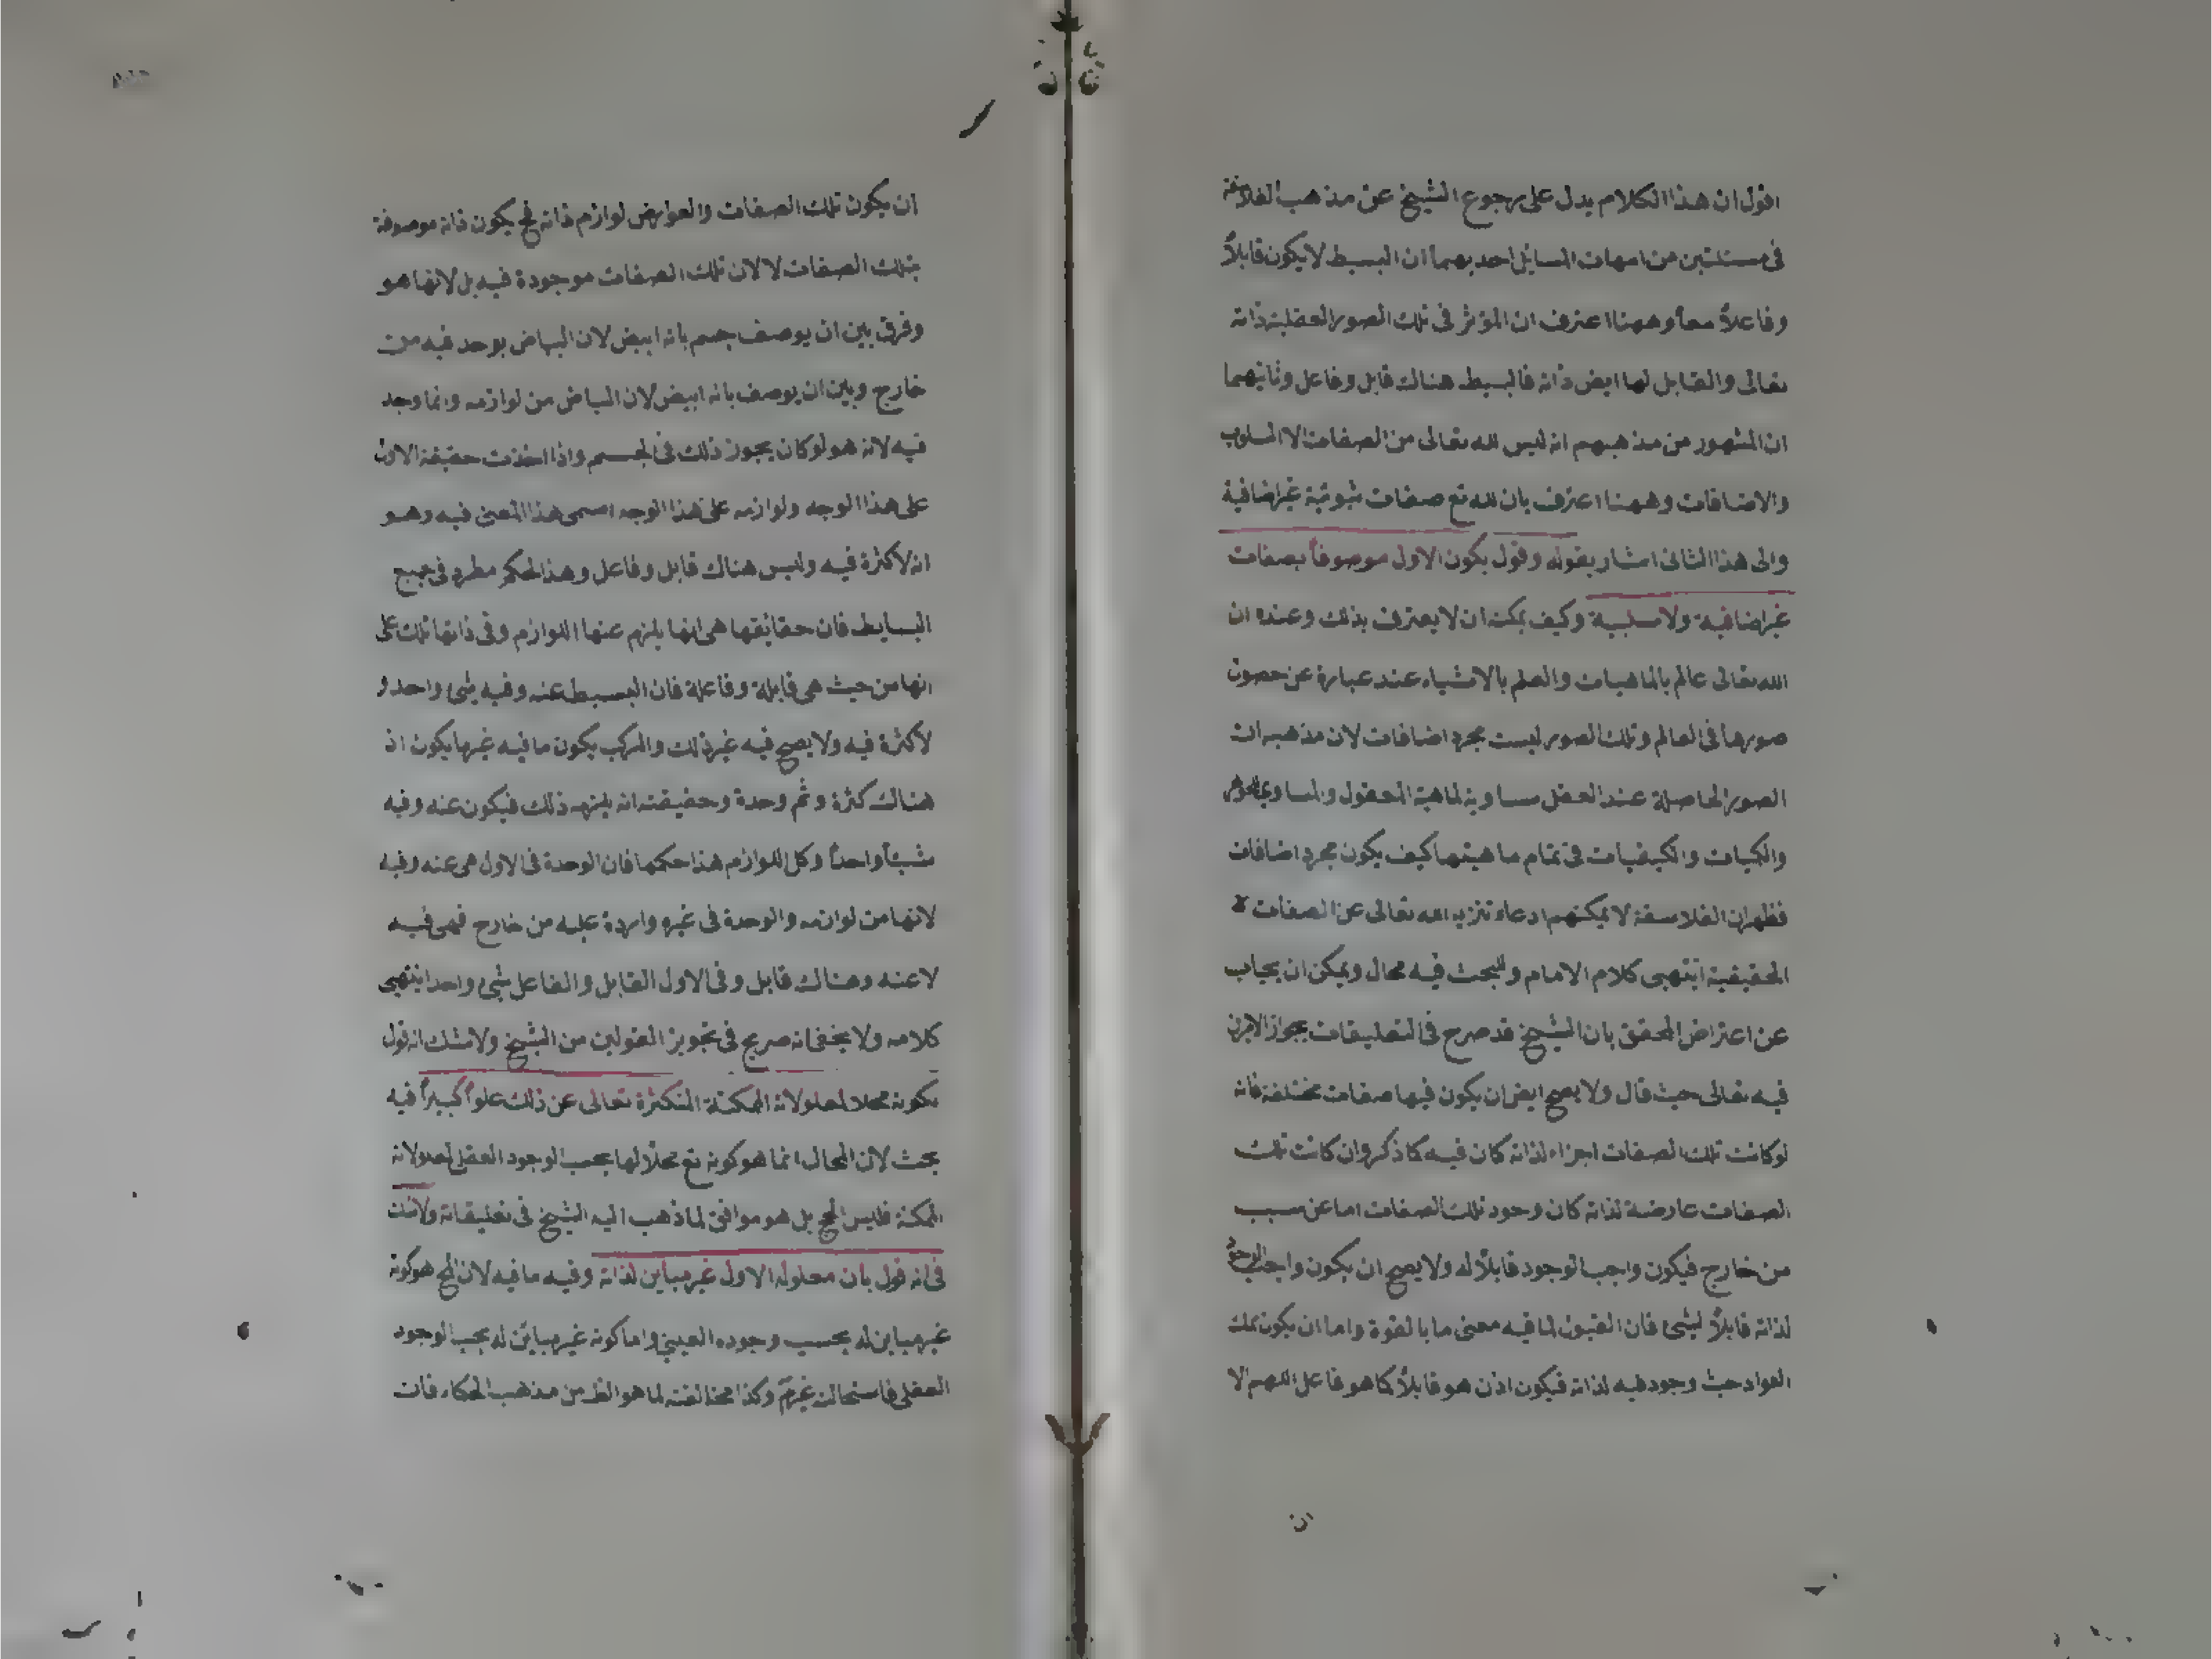 اقول ان هذا الكلام يدل على رجوع الشيخ عن مذهب الفلاسفة
فى مسئلتين من امهات المسايل احديهما ان البسيط لا يكون قابلاً
وفاعلاً معاً وههنا اعترف ان المؤثر فى تلك الصور العقلية ذاته
تعالى والقابل لها ايض ذاته فالبسيط هناك قابل وفاعل وثانيهما
ان المشهور من مذهبهم انه ليس لله تعالى من الصفات الا السلوب
والاضافات وههنا اعترف بان لله تع صفات ثبوتية غير اضافية
والى هذا الثانى اشار بقوله وقول بكون الاول موصوفاً بصفات
غير اضافية ولا سلبية وكيف يمكن ان لا يعترف بذلك وعنده ان
الله تعالى عالم بالماهيات والعلم بالاشياء عنده عبارة عن حصول
صورها فى العالم وتلك الصور ليست مجرد اضافات لان مذهبه ان
الصور الحاصلة عند العقل مساوية لماهية المعقول والمساوى للجواهر
والكميات والكيفيات فى تمام ماهيتها كيف يكون مجرد اضافات
فظهر ان الفلاسفة لا يمكنهم ادعاء تنزيه الله تعالى عن الصفات
الحقيقية انتهى كلام الامام وللبحث فيه مجال ويمكن ان يجاب
عن اعتراض المحقق بان الشيخ قد صرح فى التعليقات بجواز الامرين
فيه تعالى حيث قال ولا يصح ايض ان يكون فيها صفات مختلفة فانه
لو كانت تلك الصفات اجزاء لذاته كان فيه كما ذكر وان كانت تلك
الصفات عارضة لذاته كان وجود تلك الصفات اما عن سبب
من خارج فيكون واجب الوجود قابلاً له ولا يصح ان يكون واجب الوجود
لذاته قابلاً لشئ فان القبول لما فيه معنى ما بالقوة واما ان يكون تلك
العوارض وجود فيه لذاته فيكون اذن هو قابلاً كما هو فاعل اللهم الا
ان
ان يكون تلك الصفات والعوارض لوازم ذاته فح يكون ذاته موصوفة
بتلك الصفات لا لان تلك الصفات موجودة فيه بل لانها هو
وفرق بين ان يوصف جسم بانه ابيض لان البياض يوجد فيه من
خارج وبين ان يوصف بانه ابيض لان البياض من لوازمه وانما وجد
فيه لانه هو لو كان يجوز ذلك فى الجسم واذا اخذت حقيقة الاول
على هذا الوجه ولوازمه على هذا الوجه استمر هذا المعنى فيه وهو
انه لا كثرة فيه وليس هناك قابل وفاعل وهذا الحكم مطرد فى جميع
البسايط فان حقائقها هى انها يلزم عنها اللوازم وفى ذاتها تلك على
انها من حيث هى قابلة وفاعلة فان البسيط عنه وفيه شئ واحد و
لا كثرة فيه ولا يصح فيه غير ذلك والمركب يكون ما فيه غير ما يكون اذ
هناك كثرة وثم وحدة وحقيقته انه يلزمه ذلك فيكون عنه وفيه
شيئاً واحداً وكل اللوازم هذا حكمها فان الوحدة فى الاول هى عنه وفيه
لانها من لوازمه والوحدة فى غيره واردة عليه من خارج فهى فيه
لا عنه وهناك قابل وفى الاول القابل والفاعل شئ واحد انتهى
كلامه ولا يخفى انه صريح فى تجويز القولين من الشيخ ولا شك انه قول
بكونه محلا لمعلولاته الممكنة المتكثرة تعالى عن ذلك علواً كبيراً فيه
بحث لان المحال انما هو كونه تع محلاً لها بحسب الوجود العقلى لمعلولاته
الممكنة فليس المح بل هو موافق لما ذهب اليه الشيخ فى تعليقاته ولا شك
فى انه قول بان معلوله الاول غير مباين لذاته وفيه ما فيه لان المح هو كونه
غير مباين له بحسب وجوده العينى واما كونه غير مباين له بحسب الوجود
العقلى فاستحالته غير مم وكذا مخالفته لما هو الظ من مذهب الحكماء فان